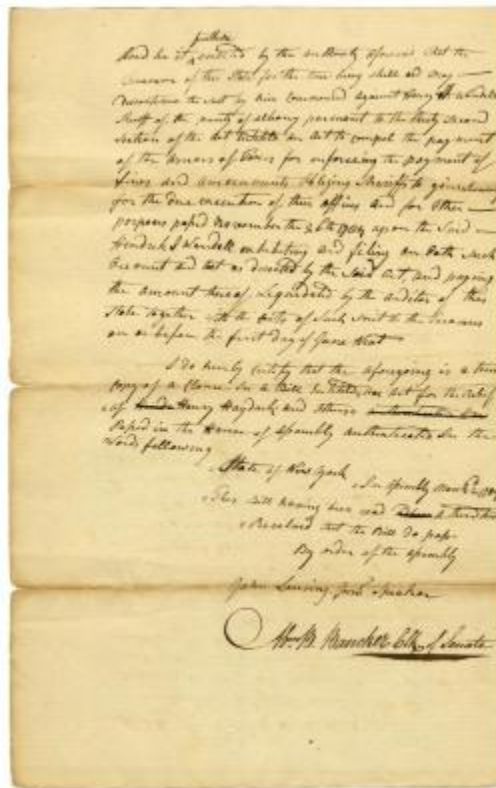 further
And be it enacted by the authority aforesaid that the
Treasurer of this State for the time being shall and may
discontinue the suit by him commenced against Henry I Wendell
Sheriff of the county of albany pursuant to the thirty second
Section of the Act to compel the payment
of the Arrears of for enforcing the payment of
fines and amerciaments Obliging Sheriffs to give
for the due execution of their offices and for Other
purposes passed November the 26th upon the said
Hendrick I Wendell exhibiting and filing on Oath such
Account and as directed by the Said Act and paying
the amount thereof Liquidated by the auditor of this
State together with the Costs of such suit to the Treasurer
on or before the first day of June next
I do hereby certify that the aforegoing is a true
Copy of a Clause In a Bill Entitled, an act for the relief
of Henry Haydock and others
Passed in the House of Assembly Authenticated In the
Words following
State of New York
In Assembly March
This Bill having been read a third
Resolved that the Bill do pass
By order of the assembly
John Lansing Junr Speaker
Abm B. Bancker Clk of Senate